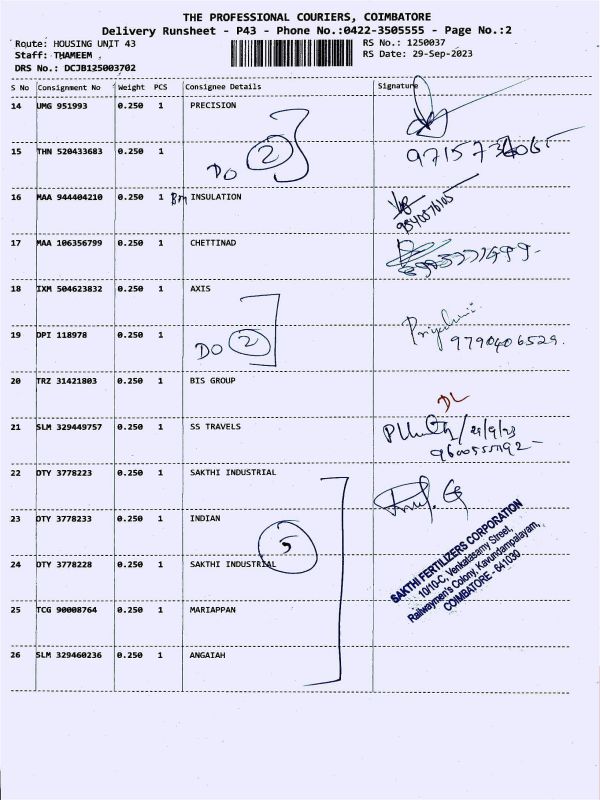 THE PROFESSIONAL COURIERS, COIMBATORE
Delivery Runsheet - P43 - Phone No.:0422-3505555 - Page No.:2
Route: HOUSING UNIT 43 RS No.: 1250037
Staff: THAMEEM RS Date: 29-Sep-2023
DRS No.: DCJB125003702
S No Consignment No Weight PCS Consignee Details Signature
14 UMG 951993 0.250 1 PRECISION
15 THN 520433683 0.250 1
DO 2
16 MAA 944404210 0.250 1 INSULATION
17 MAA 106356799 0.250 1 CHETTINAD
18 IXM 504623832 0.250 1 AXIS
19 DPI 118978 0.250 1
DO 2 9790406529.
20 TRZ 31421803 0.250 1 BIS GROUP
DL
21 SLM 329449757 0.250 1 SS TRAVELS
29/9/23
22 OTY 3778223 0.250 1 SAKTHI INDUSTRIAL
23 OTY 3778233 0.250 1 INDIAN
5
24 OTY 3778228 0.250 1 SAKTHI INDUSTRIAL
25 TCG 90008764 0.250 1 MARIAPPAN
26 SLM 329460236 0.250 1 ANGAIAH
SAKTHI FERTILIZERS CORPORATION
10/10-C, Venkatasamy Street,
Railwaymen's Colony, Kavundampalayam,
COIMBATORE - 641030